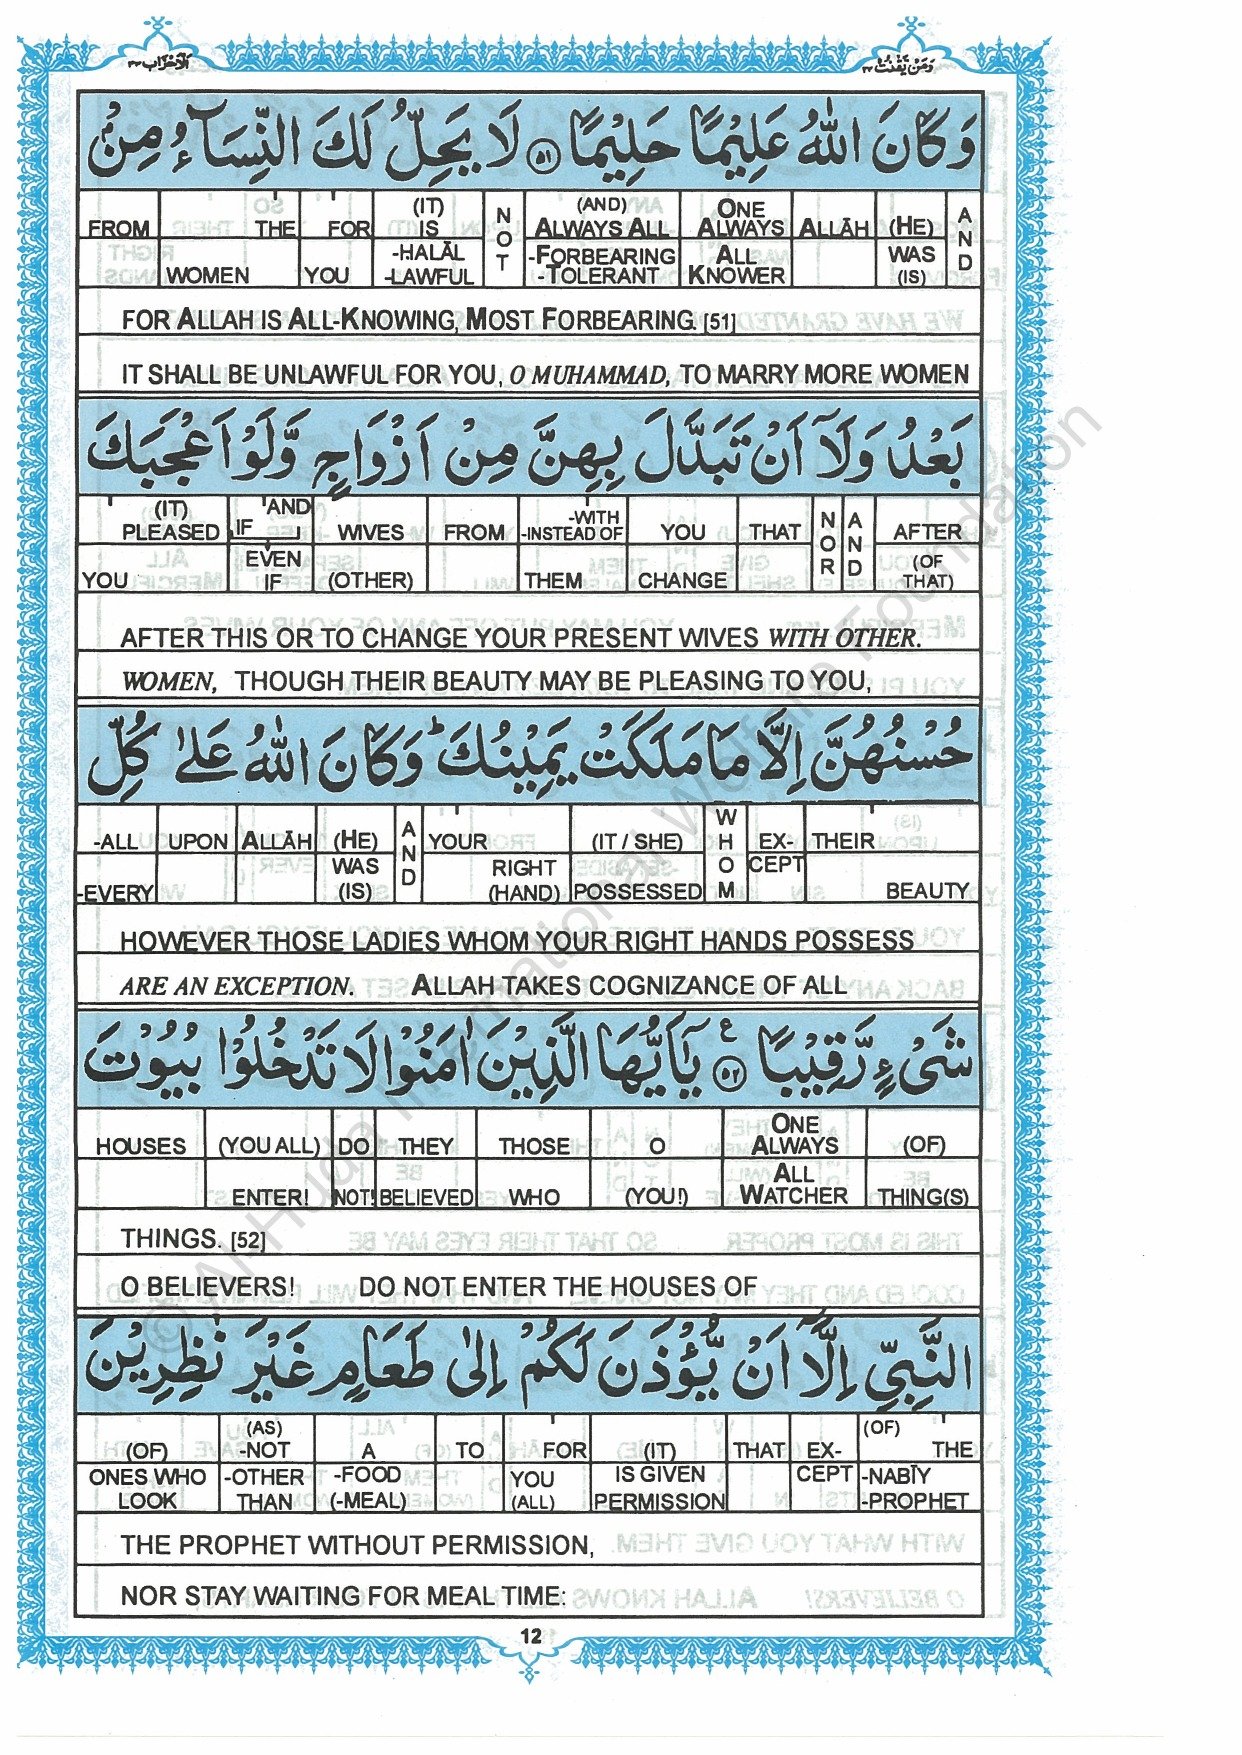 الاحزاب ٣٣
ومن يقنت ٢٢
وَكَانَ اللهُ عَلِيْمًا حَلِيْمًا ﴿٥١﴾ لَا يَحِلُّ لَكَ النِّسَآءُ مِنْۢ
FROM THE FOR (IT) IS NOT (AND) ALWAYS ALL ONE ALWAYS ALLĀH (HE) AND
WOMEN YOU -HALĀL -LAWFUL -FORBEARING -TOLERANT ALL KNOWER WAS (IS)
FOR ALLAH IS ALL-KNOWING, MOST FORBEARING. [51]
IT SHALL BE UNLAWFUL FOR YOU, O MUHAMMAD, TO MARRY MORE WOMEN
بَعْدُ وَلَآ اَنْ تَبَدَّلَ بِهِنَّ مِنْ اَزْوَاجٍ وَّلَوْ اَعْجَبَكَ
(IT) PLEASED IF 'AND WIVES FROM -WITH -INSTEAD OF YOU THAT NOR AND AFTER
YOU EVEN IF (OTHER) THEM CHANGE (OF THAT)
AFTER THIS OR TO CHANGE YOUR PRESENT WIVES WITH OTHER.
WOMEN, THOUGH THEIR BEAUTY MAY BE PLEASING TO YOU,
حُسْنُهُنَّ اِلَّا مَا مَلَكَتْ يَمِيْنُكَ ؕ وَكَانَ اللهُ عَلٰى كُلِّ
-ALL UPON ALLĀH (HE) AND YOUR (IT / SHE) WHOM EX- THEIR
-EVERY WAS (IS) RIGHT (HAND) POSSESSED CEPT BEAUTY
HOWEVER THOSE LADIES WHOM YOUR RIGHT HANDS POSSESS
ARE AN EXCEPTION. ALLAH TAKES COGNIZANCE OF ALL
شَىْءٍ رَّقِيْبًا ﴿٥٢﴾ ع يٰٓاَيُّهَا الَّذِيْنَ اٰمَنُوْا لَا تَدْخُلُوْا بُيُوْتَ
HOUSES (YOU ALL) DO THEY THOSE O ONE ALWAYS (OF)
ENTER! NOT! BELIEVED WHO (YOU!) ALL WATCHER THING(S)
THINGS. [52]
O BELIEVERS! DO NOT ENTER THE HOUSES OF
النَّبِيِّ اِلَّآ اَنْ يُّؤْذَنَ لَكُمْ اِلٰى طَعَامٍ غَيْرَ نٰظِرِيْنَ
(OF) (AS) -NOT A TO FOR (IT) THAT EX- (OF) THE
ONES WHO LOOK -OTHER THAN -FOOD (-MEAL) YOU (ALL) IS GIVEN PERMISSION CEPT -NABĪY -PROPHET
THE PROPHET WITHOUT PERMISSION,
NOR STAY WAITING FOR MEAL TIME:
12
© Al-Huda International Welfare Foundation